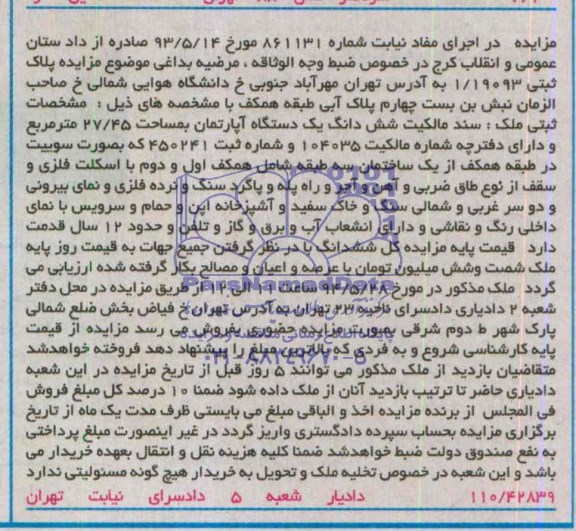 مزایده در اجرای مفاد نیابت شماره ۸۶۱۱۳۱ مورخ ۹۳/۵/۱۴ صادره از داد ستان
عمومی و انقلاب کرج در خصوص ضبط وجه الوثاقه ، مرضیه بداغی موضوع مزایده پلاک
ثبتی ۱/۱۹۰۹۳ به آدرس تهران مهرآباد جنوبی خ دانشگاه هوایی شمالی خ صاحب
الزمان نبش بن بست چهارم پلاک آبی طبقه همکف با مشخصه های ذیل : مشخصات
ثبتی ملک : سند مالکیت شش دانگ یک دستگاه آپارتمان بمساحت ۲۷/۴۵ مترمربع
و دارای دفترچه شماره مالکیت ۱۰۴۰۳۵ و شماره ثبت ۴۵۰۲۴۱ که بصورت سوییت
در طبقه همکف از یک ساختمان سه طبقه شامل همکف اول و دوم با اسکلت فلزی و
سقف از نوع طاق ضربی و آهن و آجر و راه پله و پاگرد سنگ و نرده فلزی و نمای بیرونی
و دو سر غربی و شمالی سنگ و خاک سفید و آشپزخانه اپن و حمام و سرویس با نمای
داخلی رنگ و نقاشی و دارای انشعاب آب و برق و گاز و تلفن و حدود ۱۲ سال قدمت
دارد قیمت پایه مزایده کل ششدانگ با در نظر گرفتن جمیع جهات به قیمت روز پایه
ملک شصت وشش میلیون تومان با عرصه و اعیان و مصالح بکار گرفته شده ارزیابی می
گردد ملک مذکور در مورخ ۹۴/۵/۲۸ ساعت ۱۱ الی ۱۲ از طریق مزایده در محل دفتر
شعبه ۲ دادیاری دادسرای ناحیه ۲۳ تهران به آدرس تهران خ فیاض بخش ضلع شمالی
پارک شهر ط دوم شرقی بصورت مزایده حضوری بفروش می رسد مزایده از قیمت
پایه کارشناسی شروع و به فردی که بالاترین مبلغ را پیشنهاد دهد فروخته خواهدشد
متقاضیان بازدید از ملک مذکور می توانند ۵ روز قبل از تاریخ مزایده در این شعبه
دادیاری حاضر تا ترتیب بازدید آنان از ملک داده شود ضمنا ۱۰ درصد کل مبلغ فروش
فی المجلس از برنده مزایده اخذ و الباقی مبلغ می بایستی ظرف مدت یک ماه از تاریخ
برگزاری مزایده بحساب سپرده دادگستری واریز گردد در غیر اینصورت مبلغ پرداختی
به نفع صندوق دولت ضبط خواهدشد ضمنا کلیه هزینه نقل و انتقال بعهده خریدار می
باشد و این شعبه در خصوص تخلیه ملک و تحویل به خریدار هیچ گونه مسئولیتی ندارد
۱۱۰/۴۲۸۳۹ دادیار شعبه ۵ دادسرای نیابت تهران
ParsNamadData
۰۲۱-۸۸۳۴۹۶۷۰-۵